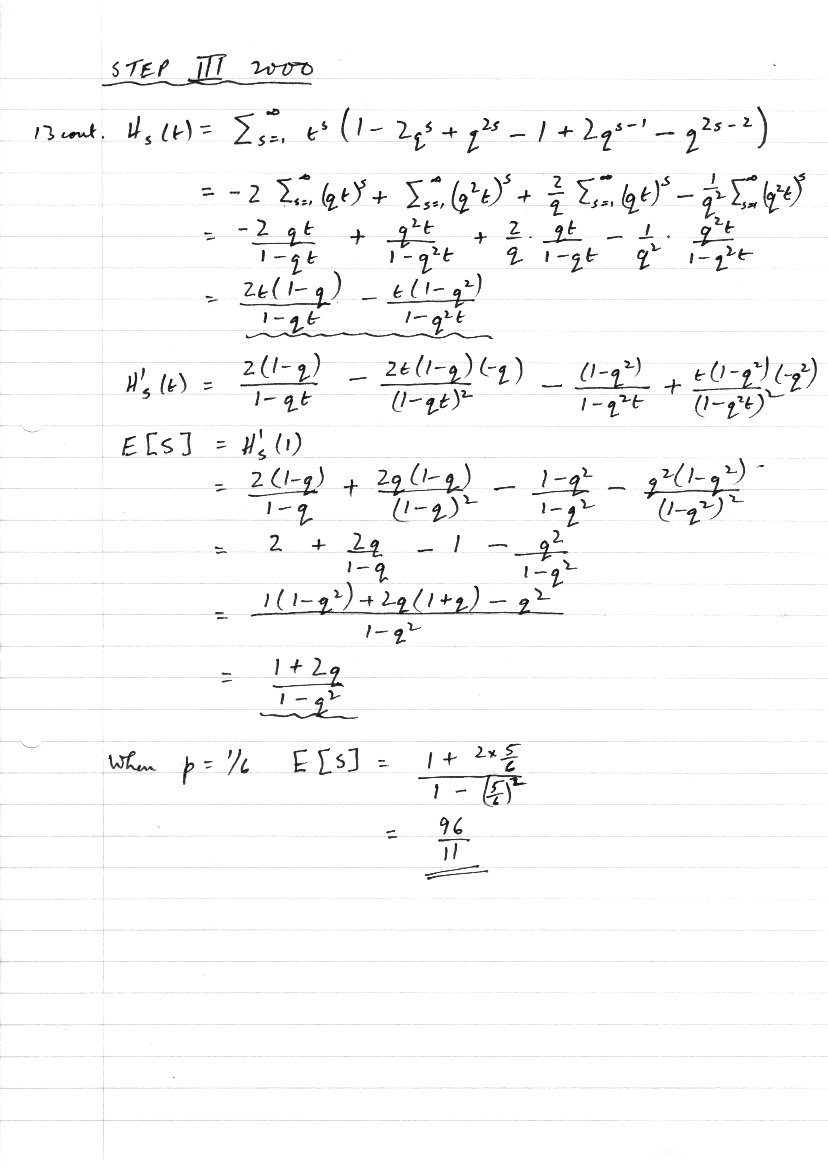 STEP III 2000
13 cont. H_s(t) = Σ_{s=1}^∞ t^s (1 - 2q^s + q^{2s} - 1 + 2q^{s-1} - q^{2s-2})
= -2 Σ_{s=1}^∞ (qt)^s + Σ_{s=1}^∞ (q²t)^s + 2/q Σ_{s=1}^∞ (qt)^s - 1/q² Σ_{s=1}^∞ (q²t)^s
= -2 qt/(1-qt) + q²t/(1-q²t) + 2/q · qt/(1-qt) - 1/q² · q²t/(1-q²t)
= 2t(1-q)/(1-qt) - t(1-q²)/(1-q²t)
H'_s(t) = 2(1-q)/(1-qt) - 2t(1-q)(-q)/(1-qt)² - (1-q²)/(1-q²t) + t(1-q²)(-q²)/(1-q²t)²
E[S] = H'_s(1)
= 2(1-q)/(1-q) + 2q(1-q)/(1-q)² - (1-q²)/(1-q²) - q²(1-q²)/(1-q²)²
= 2 + 2q/(1-q) - 1 - q²/(1-q²)
= (1(1-q²) + 2q(1+q) - q²)/(1-q²)
= (1+2q)/(1-q²)
When p = 1/6 E[S] = (1 + 2×5/6)/(1 - (5/6)²)
= 96/11